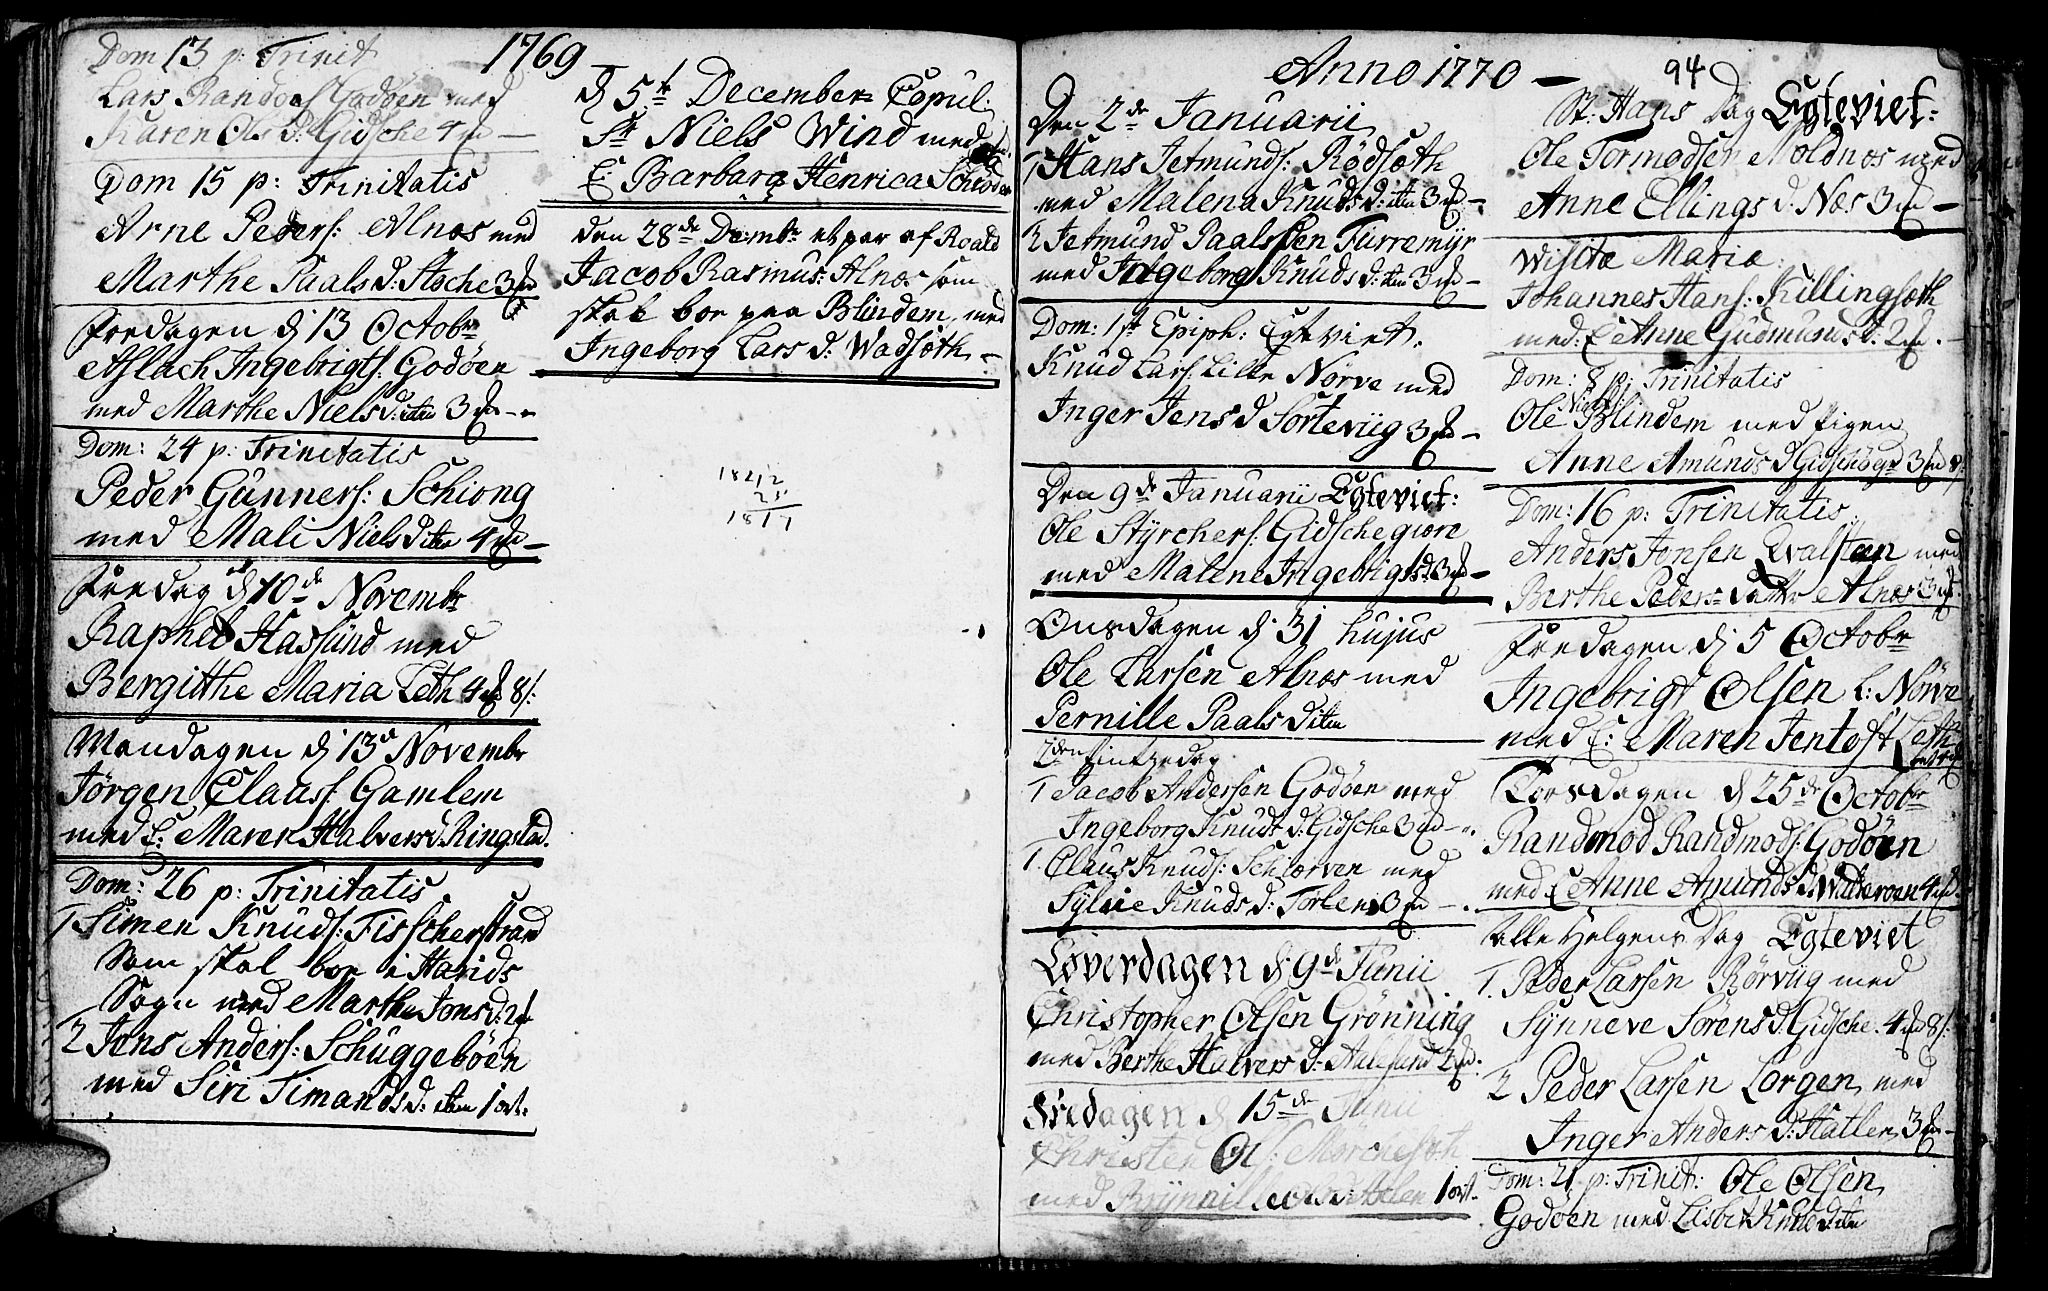 1769
Dom 13 p: Trinit
Lars Randors Godøen med
Karen Ols d: Gidsche 4
Dom 15 p: Trinitatis
Arne Peders: Alnæs med
Marthe Paals d: Stoche 3
Fredagen d 13 Octobr
Aslach Ingebrigts: Godøen
med Marthe Niels d: item 3
Dom: 24 p: Trinitatis
Peder Gunners: Schiong
med Mali Niels d item 4
Fredag d 10de Novembr
Raphel Haslund med
Bergitthe Maria Leth 4 8/:
Mandagen d 13de Novembr
Jørgen Clauss: Gamlem
med E: Maren Halvers d. Ringstad.
Dom: 26 p: Trinitatis
1 Simen Knuds: Fisscherstrand
Som skal boe i Harids
Sogn med Marthe Jons d:
2 Jens Anders: Schuggebøen
med Siri Timands d: item 1 ort:
d 5te December Copul:
Sr Niels Wind med
Barbara Henrica
den 28de Decembr et par af Roald
Jacob Rasmus: Alnæs som
skal boe paa Blindem, med
Ingeborg Lars d: Wadsøth
1842
25
1817
Anno 1770
94
Den 2de Januarii
1 Hans Jetmunds: Rødsæth
med Malena Knuds d: item 3
2 Jetmund Paalssen Furremyr
med Ingeborg Knuds d: item 3
Dom: 1st Epiph: Egteviet.
Knud Lars: Lille Nørve med
Inger Jens d Sorteviig 3
Den 9de Januarii Egteviet:
Ole Styrchers: Gidschegiøre
med Malene Ingebrigts d. 3
Onsdagen d 31 hujus
Ole Larsen Alnæs med
Pernille Paals d item
2den Pintzedag
1 Jacob Andersen Godøen med
Ingeborg Knuds d: Gidsche 3
1. Claus Knuds: Schiærven med
Sylvie Knuds d: Torlen 3
Løverdagen d 9de Junii
Christopher Olsen Grønning
med Berthe Halvers d: Aalesund 2
Fredagen d 15de Junii
Christen Ols:
med 1 ort.
St: Hans Dag Egteviet:
Ole Tormodsen Moldnæs med
Anne Ellings d: Næs 3
Visita Mariæ
Johannes Hans: Killingsæth
med: E Anne Gudmunds d: 2
Dom: 8 p: Trinitatis
Niels:
Ole Blindem med Pigen
Anne Amunds d 3 8/:
Dom: 16 p: Trinitatis
Anders Jonsen Qvalsteen med
Berthe Peders datter Alnæs 3
Fredagen d 5 Octobr
Ingebrigt Olsen l: Nørve
med E: Maren Jentoft Leth
Torsdagen d 25de Octobr
Randmod Randmods: Godøen
med E Anne Amunds d. 4
Alle Helgens Dag Egteviet
1. Peder Larsen Rørvug med
Synneve Sørens d. Gidsche. 4 8/:
2 Peder Larsen Lorgen med
Inger Anders d: Hatlen 3
Dom: 21 p: Trinit: Ole Olsen
Godøen med Lisbet Knuds d: item